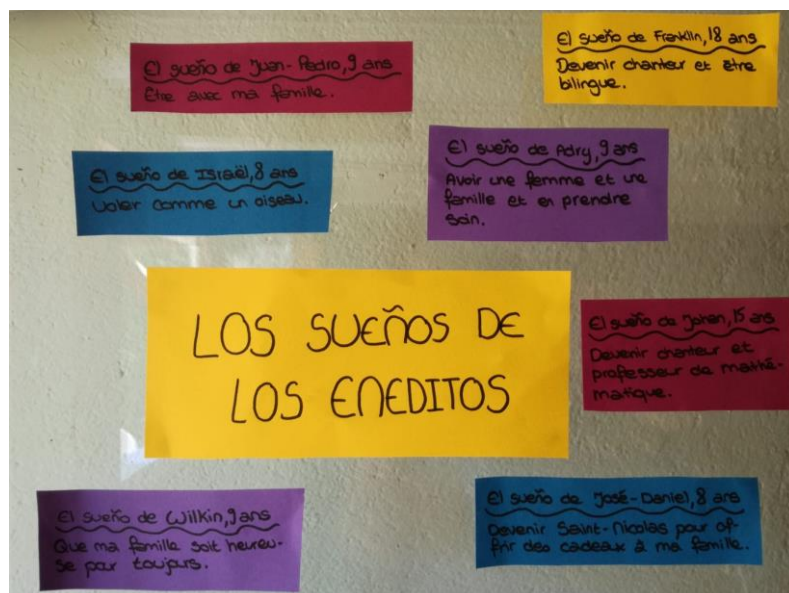 El sueño de Juan-Pedro, 9 ans
Etre avec ma famille.
El sueño de Franklin, 18 ans
Devenir chanteur et être
bilingue.
El sueño de Israël, 8 ans
Voler comme un oiseau.
El sueño de Adry, 9 ans
Avoir une femme et une
famille et en prendre
soin.
LOS SUEÑOS DE
LOS ENEDITOS
El sueño de Johen, 15 ans
Devenir chanteur et
professeur de mathé-
matique.
El sueño de Wilkin, 9 ans
Que ma famille soit heureu-
se pour toujours.
El sueño de José-Daniel, 8 ans
Devenir Saint-Nicolas pour of-
frir des cadeaux à ma famille.